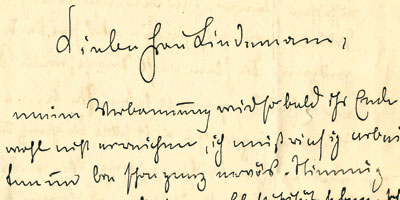 Liebe Frau Lindemann,
meine Verbannung wird so bald ihr Ende
wohl nicht erreichen, ich muß ruhig arbei
ten und bin schon ganz nervös.